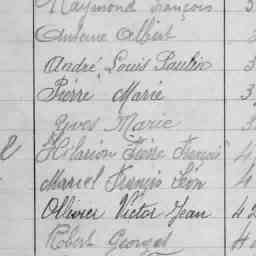 Raymond François 3
Antoine Albert
André Louis Paulin 3
Pierre Marie 3
Yves Marie 3
Hilarion Pierre François 4
Marcel Francis Léon 4
Ollivier Victor Jean 42
Robert Georges 4